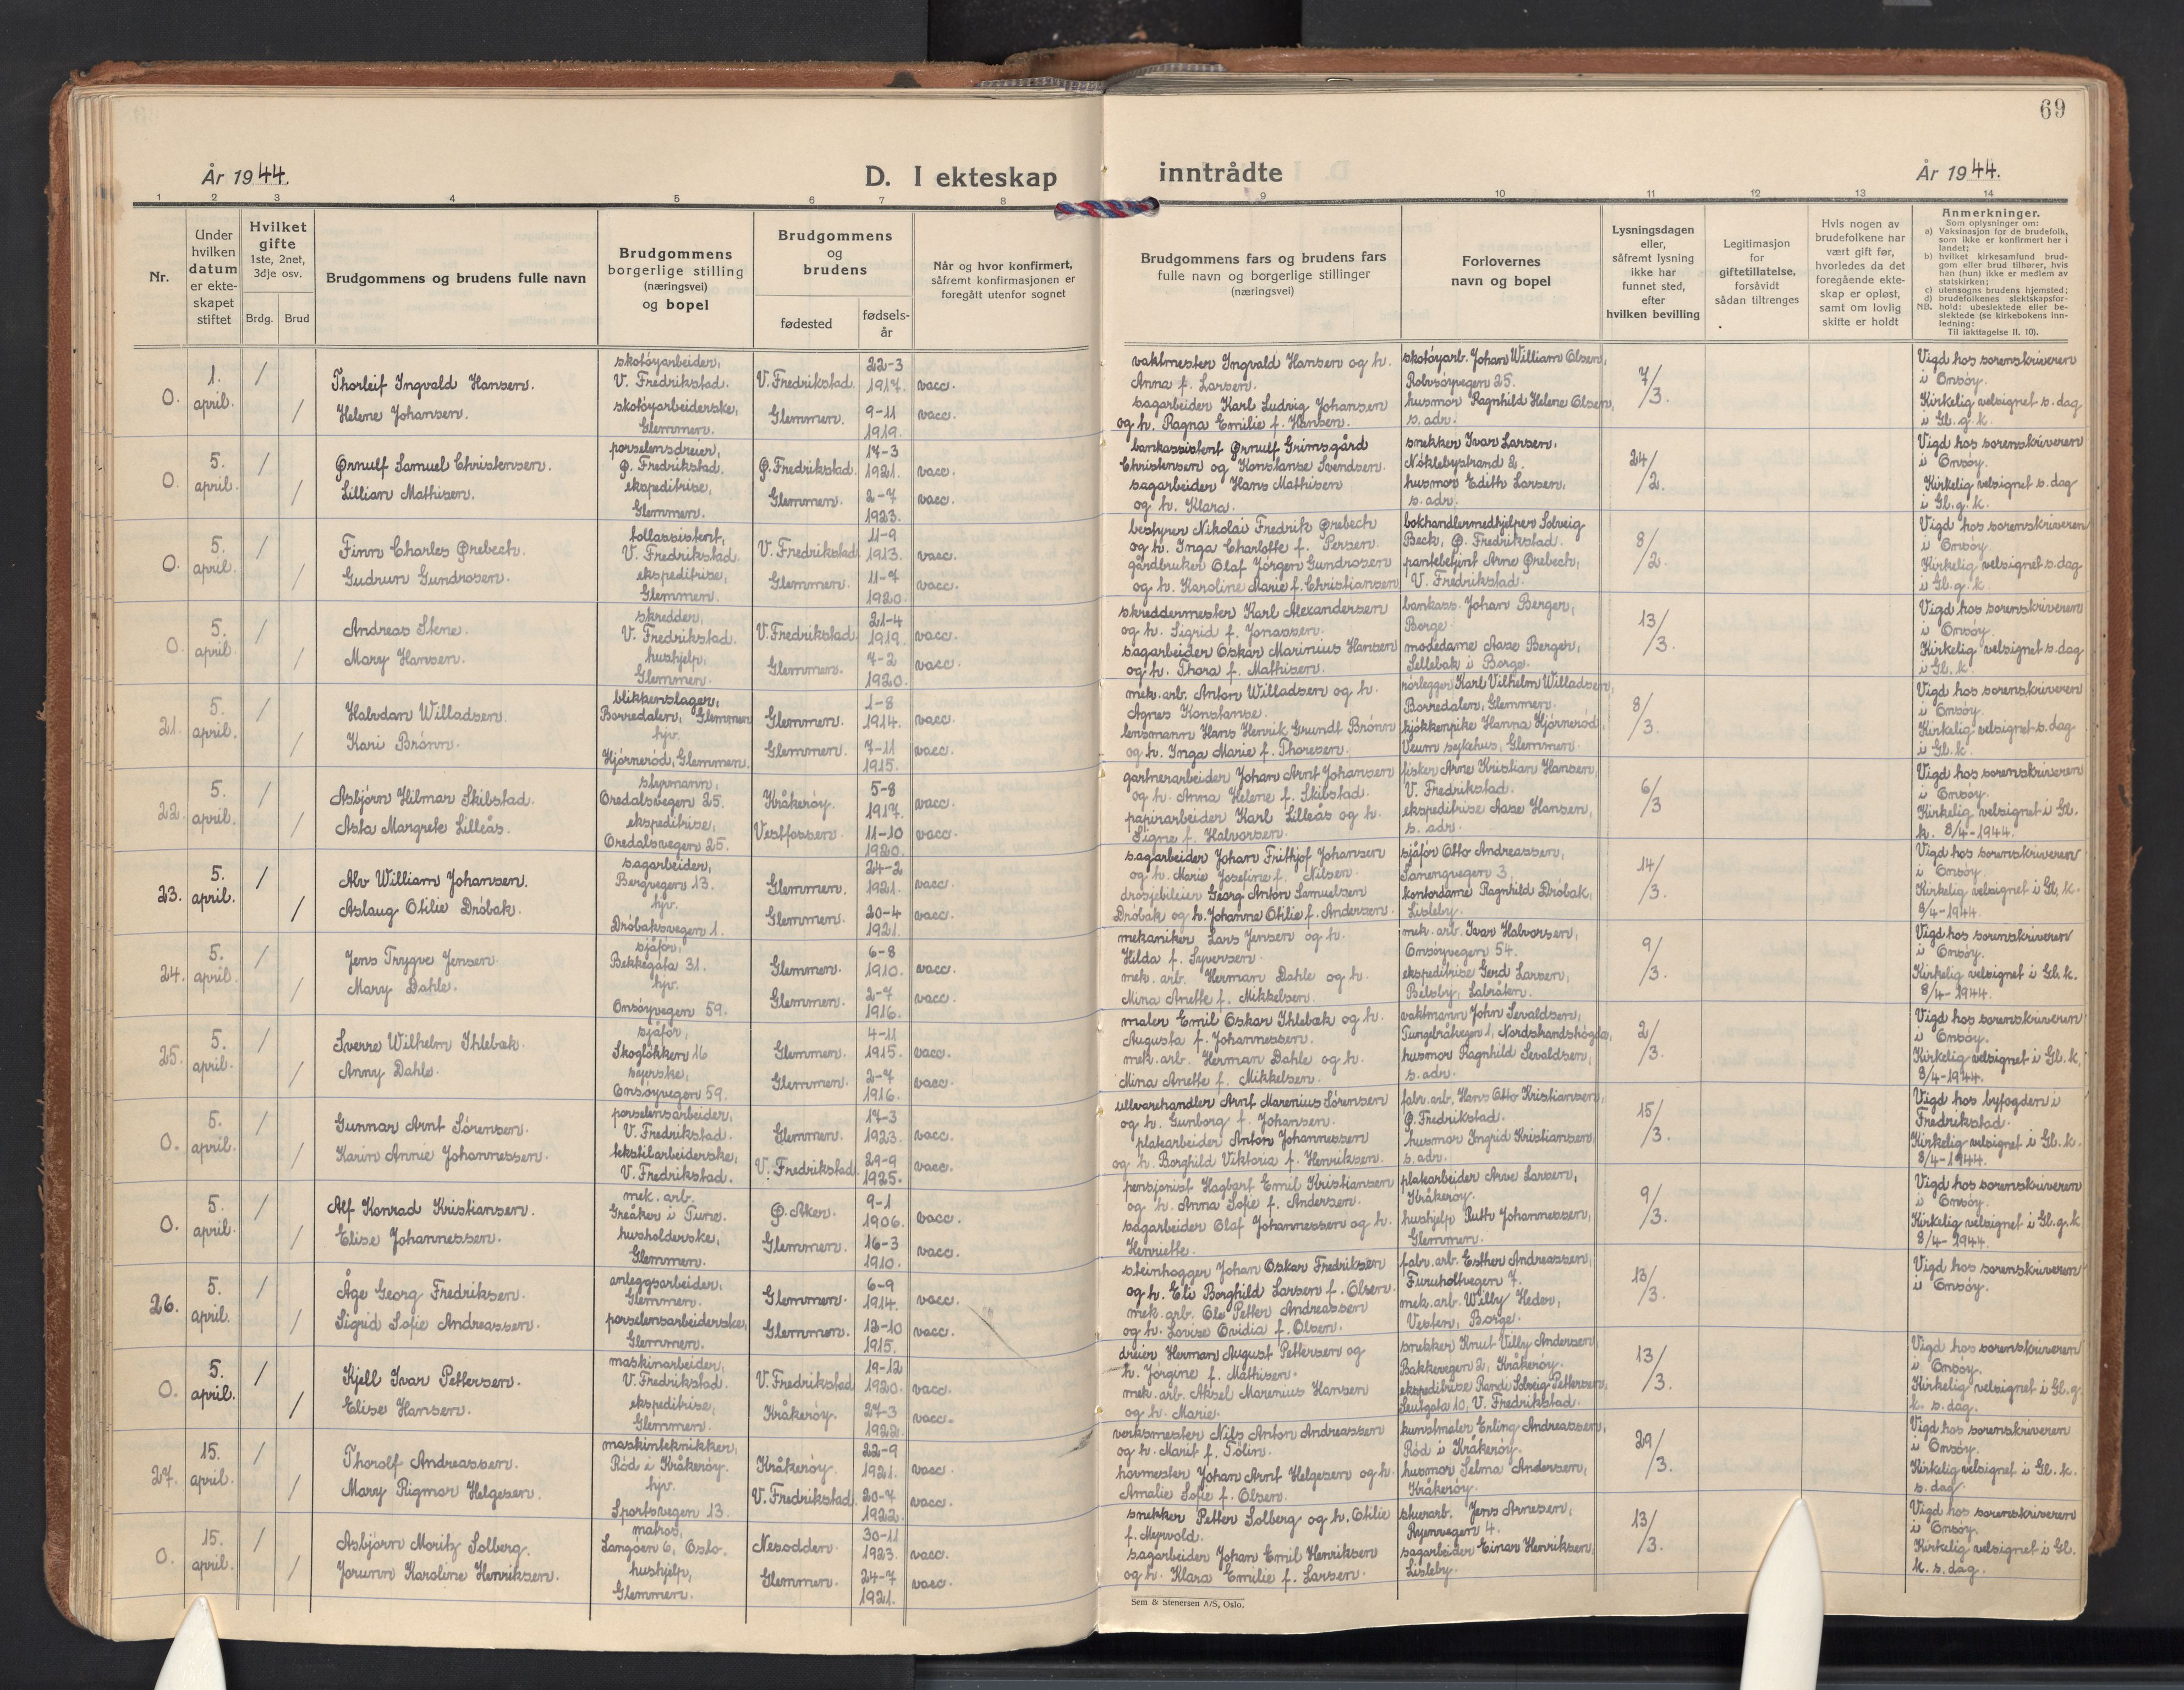 69
År 1944.
D. I ekteskap inntrådte
År 1944.
1 2 3 4 5 6 7 8 9 10 11 12 13 14
Nr.
Under
hvilken
datum
er ekte-
skapet
stiftet
Hvilket
gifte
1ste, 2net,
3dje osv.
Brdg. Brud
Brudgommens og brudens fulle navn
Brudgommens
borgerlige stilling
(næringsvei)
og bopel
Brudgommens
og
brudens
fødested
fødsels-
år
Når og hvor konfirmert,
såfremt konfirmasjonen er
foregått utenfor sognet
Brudgommens fars og brudens fars
fulle navn og borgerlige stillinger
(næringsvei)
Forlovernes
navn og bopel
Lysningsdagen
eller,
såfremt lysning
ikke har
funnet sted,
efter
hvilken bevilling
Legitimasjon
for
giftetillatelse,
forsåvidt
sådan tiltrenges
Hvis nogen av
brudefolkene har
vært gift før,
hvorledes da det
foregående ekte-
skap er opløst,
samt om lovlig
skifte er holdt
Anmerkninger.
Som oplysninger om:
a) Vaksinasjon for de brudefolk,
som ikke er konfirmert her i
landet;
b) hvilket kirkesamfund brud-
gom eller brud tilhører, hvis
han (hun) ikke er medlem av
statskirken;
c) utensogns brudens hjemsted;
d) brudefolkenes slektskapsfor-
NB. hold: ubeslektede eller be-
slektede (se kirkebokens inn-
ledning:
Til iakttagelse II. 10).
0. 1. april. / /
Thorleif Ingvald Hansen.
Helene Johansen.
skotøyarbeider,
V. Fredrikstad.
skotøyarbeiderske,
Glemmen.
V. Fredrikstad. 22-3 1917. vacc.
Glemmen. 9-11 1919. vacc.
vaktmester Ingvald Hansen og h.
Anna f. Larsen.
sagarbeider Karl Ludvig Johansen
og h. Ragna Emilie f. Hansen.
skotøyarb. Johan William Olsen,
Rolvsøyvegen 25.
husmor Ragnhild Helene Olsen,
s. adr.
7/3.
Vigd hos sorenskriveren
i Onsøy.
Kirkelig velsignet s. dag
i Gl. g. k.
0. 5. april. / /
Ørnulf Samuel Christensen.
Lillian Mathisen.
porselensdreier,
Ø. Fredrikstad.
ekspeditrise,
Glemmen.
Ø. Fredrikstad. 17-3 1921. vacc.
Glemmen. 2-7 1923. vacc.
bankassistent Ørnulf Grimsgård
Christensen og Konstanse Svendsen.
sagarbeider Hans Mathisen
og h. Klara.
snekker Ivar Larsen,
Nøklebystrand 2.
husmor Edith Larsen,
s. adr.
24/2.
Vigd hos sorenskriveren
i Onsøy.
Kirkelig velsignet s. dag
i Gl. g. k.
0. 5. april. / /
Finn Charles Ørebech.
Gudrun Gundrosen.
tollassistent,
V. Fredrikstad.
ekspeditrise,
Glemmen.
V. Fredrikstad. 11-9 1913. vacc.
Glemmen. 11-7 1920. vacc.
bestyrer Nikolai Fredrik Ørebech
og h. Inga Charlotte f. Persen.
gårdbruker Olaf Jørgen Gundrosen
og h. Karoline Marie f. Christiansen
bokhandlermedhjelper Solveig
Beck, Ø. Fredrikstad.
pantebetjent Arne Ørebech,
V. Fredrikstad.
8/2.
Vigd hos sorenskriveren
i Onsøy.
Kirkelig velsignet s. dag
i Gl. g. k.
0. 5. april. / /
Andreas Stene.
Mary Hansen.
skredder,
V. Fredrikstad.
hushjelp,
Glemmen.
V. Fredrikstad. 21-4 1919. vacc.
Glemmen. 7-2 1920. vacc.
skreddermester Karl Alexandersen
og h. Sigrid f. Jonassen.
sagarbeider Oskar Marinius Hansen
og h. Thora f. Mathisen.
bankass. Johan Berger,
Borge.
modedame Aase Berger,
Sellebak i Borge.
13/3.
Vigd hos sorenskriveren
i Onsøy.
Kirkelig velsignet s. dag
i Gl. k.
21. 5. april. / /
Halvdan Willadsen.
Kari Brønn.
blikkenslager,
Borredalen, Glemmen
hjv.
Hjørnerød, Glemmen.
Glemmen. 1-8 1914. vacc.
Glemmen. 7-11 1915. vacc.
mek. arb. Anton Willadsen og h.
Agnes Konstanse.
lensmann Hans Henrik Grundt Brønn
og h. Inga Marie f. Thoresen.
rørlegger Karl Vilhelm Willadsen,
Borredalen, Glemmen.
kjøkkenpike Hanna Hjørnerød,
Veum sykehus, Glemmen.
8/3.
Vigd hos sorenskriveren
i Onsøy.
Kirkelig velsignet s. dag
i Gl. k.
22. 5. april. / /
Asbjørn Hilmar Skibstad.
Asta Margrete Lilleås.
styrmann,
Oredalsvegen 25.
ekspeditrise,
Oredalsvegen 25.
Kråkerøy. 5-8 1917. vacc.
Vestfossen. 11-10 1920. vacc.
gartnerarbeider Johan Arnt Johansen
og h. Anna Helene f. Skibstad.
papirarbeider Karl Lilleås og h.
Signe f. Halvorsen.
fisker Arne Kristian Hansen,
V. Fredrikstad.
ekspeditrise Aase Hansen,
s. adr.
6/3
Vigd hos sorenskriveren
i Onsøy.
Kirkelig velsignet i Gl.
k. 8/4-1944.
23. 5. april. / /
Alv William Johansen.
Aslaug Otilie Drøbak.
sagarbeider,
Bergvegen 13.
hjv.
Drøbaksvegen 1.
Glemmen. 24-2 1921. vacc.
Glemmen. 20-4 1921. vacc.
sagarbeider Johan Frithjof Johansen
og h. Marie Josefine f. Nilsen.
drosjebileier Georg Anton Samuelsen
Drøbak og h. Johanne Otilie f. Andersen.
sjåfør Otto Andreassen,
Sanengvegen 3.
kontordame Ragnhild Drøbak,
Lisleby.
14/3.
Vigd hos sorenskriveren
i Onsøy.
Kirkelig velsignet i Gl. k.
8/4-1944.
24. 5. april. / /
Jens Trygve Jensen.
Mary Dahle.
sjåfør,
Bekkegata 31.
hjv.
Onsøyvegen 59.
Glemmen. 6-8 1910. vacc.
Glemmen. 2-7 1916. vacc.
mekaniker Lars Jensen og h.
Hilda f. Syversen.
mek. arb. Herman Dahle og h.
Mina Anette f. Mikkelsen.
mek. arb. Ivar Halvorsen,
Onsøyvegen 54.
ekspeditrise Gerd Larsen,
9/3.
Vigd hos sorenskriveren
i Onsøy.
Kirkelig velsignet i Gl. k.
8/4-1944.
25. 5. april. / /
Sverre Wilhelm Ihlebæk.
Anny Dahle.
sjåfør,
Skogløkken 16
syerske,
Onsøyvegen 59.
Glemmen. 4-11 1915. vacc.
Glemmen. 2-7 1916. vacc.
maler Emil Oskar Ihlebæk og h.
Augusta f. Johannessen.
mek. arb. Herman Dahle og h.
Mina Anette f. Mikkelsen.
vaktmann John Sevaldsen,
husmor Ragnhild Sevaldsen,
s. adr.
2/3.
Vigd hos sorenskriveren
i Onsøy.
Kirkelig velsignet i Gl. k.
8/4-1944.
0. 5. april. / /
Gunnar Arnt Sørensen.
Karin Annie Johannessen.
porselensarbeider,
V. Fredrikstad.
tekstilarbeiderske,
V. Fredrikstad.
Glemmen. 17-3 1923. vacc.
V. Fredrikstad. 29-9 1925. vacc.
ullvarehandler Arnt Marenius Sørensen
og h. Gunborg f. Johansen.
platearbeider Anton Johannessen
og h. Borghild Viktoria f. Henriksen.
fabr. arb. Hans Otto Kristiansen,
Ø. Fredrikstad.
husmor Ingrid Kristiansen,
s. adr.
15/3.
Vigd hos byfogden i
Fredrikstad.
Kirkelig velsignet i Gl. k.
8/4-1944.
0. 5. april. / /
Alf Konrad Kristiansen.
Elise Johannessen.
mek. arb.
Greåker i Tune.
husholderske,
Glemmen.
Ø. Aker. 9-1 1906. vacc.
Glemmen. 16-3 1910. vacc.
pensjonist Hagbart Emil Kristiansen
og h. Anna Sofie f. Andersen.
sagarbeider Olaf Johannessen og h.
Henriette.
platearbeider Arve Larsen,
Kråkerøy.
hushjelp Ruth Johannessen,
Glemmen.
9/3.
Vigd hos sorenskriveren
i Onsøy.
Kirkelig velsignet i Gl. g. k.
8/4-1944.
26. 5. april. / /
Åge Georg Fredriksen.
Sigrid Sofie Andreassen.
anleggsarbeider,
Glemmen.
porselensarbeiderske,
Glemmen.
Glemmen. 6-9 1914. vacc.
Glemmen. 13-10 1915. vacc.
steinhogger Johan Oskar Fredriksen
og h. Eli Borghild Larsen f. Olsen.
mek. arb. Ole Petter Andreassen
og h. Lovise Ovidia f. Olsen.
fabr. arb. Esther Andreassen,
Furuholtvegen 7.
mek. arb. Willy Heder,
Vesten, Borge.
13/3.
Vigd hos sorenskriveren
i Onsøy.
0. 5. april. / /
Kjell Ivar Pettersen.
Elise Hansen.
maskinarbeider,
V. Fredrikstad.
ekspeditrise,
Glemmen.
V. Fredrikstad 19-12 1920. vacc.
Kråkerøy. 27-3 1922. vacc.
dreier Herman August Pettersen og
h. Jørgine f. Mathisen.
mek. arb. Aksel Marenius Hansen
og h. Marie.
snekker Knut Villy Andersen
Bakkevegen 2, Kråkerøy.
ekspeditrise Randi Solveig Pettersen,
V. Fredrikstad.
13/3.
Vigd hos sorenskriveren
i Onsøy.
Kirkelig velsignet i Gl. g.
k. s. dag.
27. 15. april. / /
Thorolf Andreassen.
Mary Rigmor Helgesen.
maskintekniker,
Rød i Kråkerøy.
hjv.
Sportsvegen 13.
Kråkerøy. 22-9 1921. vacc.
V. Fredrikstad. 20-7 1922. vacc.
verksmester Nils Anton Andreassen
og h. Marit f. Tølin.
hovmester Johan Arnt Helgesen og h.
Amalie Sofie f. Olsen.
kunstmaler Erling Andreassen,
Rød i Kråkerøy.
husmor Selma Andersen,
Kråkerøy.
29/3.
Vigd hos sorenskriveren
i Onsøy.
Kirkelig velsignet i Gl. k.
s. dag.
0. 15. april. / /
Asbjørn Moritz Solberg.
Jorunn Karoline Henriksen.
matros,
Langøen 6, Oslo.
hushjelp,
Glemmen.
Nesodden. 30-11 1923. vacc.
Glemmen. 24-7 1921. vacc.
snekker Petter Solberg og h. Otilie
f. Myrvold.
sagarbeider Johan Emil Henriksen
og h. Klara Emilie f. Larsen.
stuerarb. Jens Arnesen,
Ryenvegen 4.
sagarbeider Einar Henriksen,
Lisleby.
13/3.
Vigd hos sorenskriveren
i Onsøy.
Kirkelig velsignet i Gl.
k. s. dag.
Sem & Stenersen A/S, Oslo.